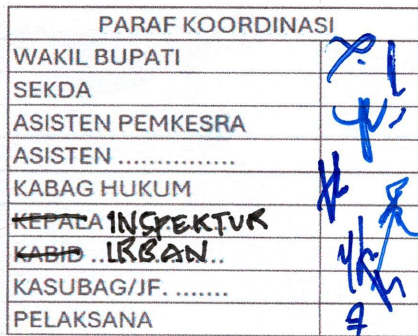 PARAF KOORDINASI
WAKIL BUPATI
SEKDA
ASISTEN PEMKESRA
ASISTEN ...............
KABAG HUKUM
KEPALA INSPEKTUR
KABID .. IRBAN...
KASUBAG/JF. .......
PELAKSANA